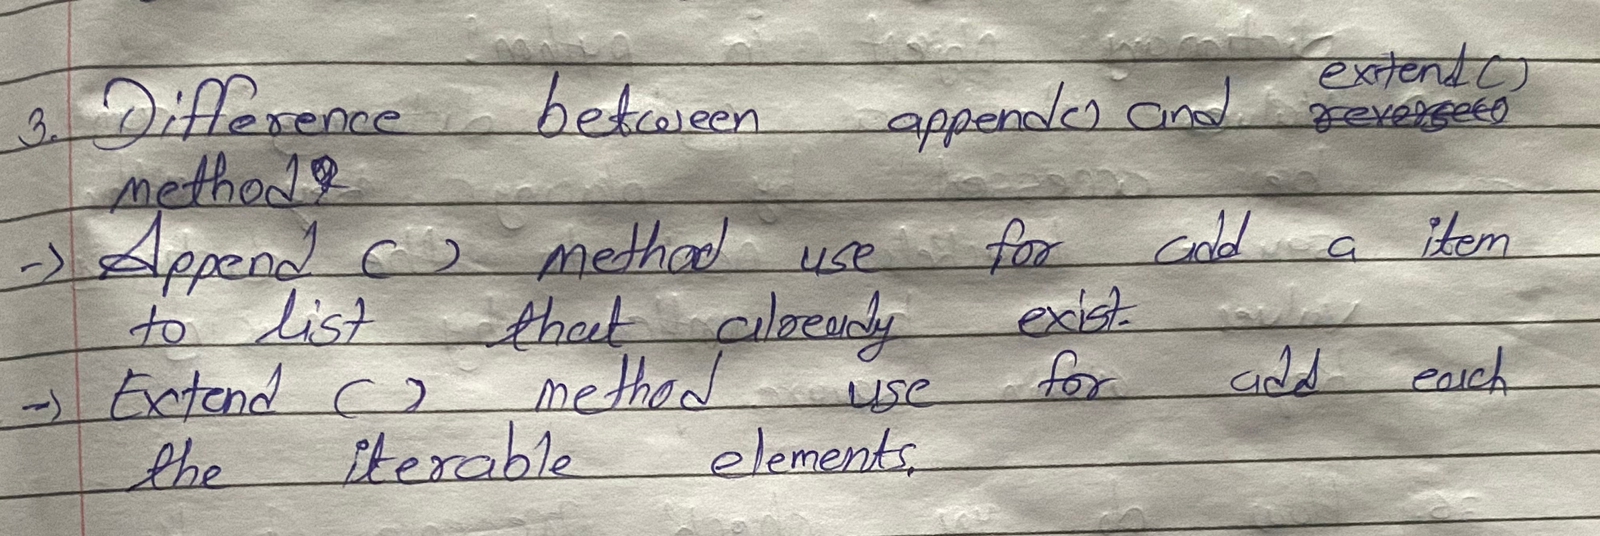 3. Difference between append() and extend()
method?
-> Append () method use for add a item
to list that already exist.
-> Extend () method use for add each
the iterable elements.